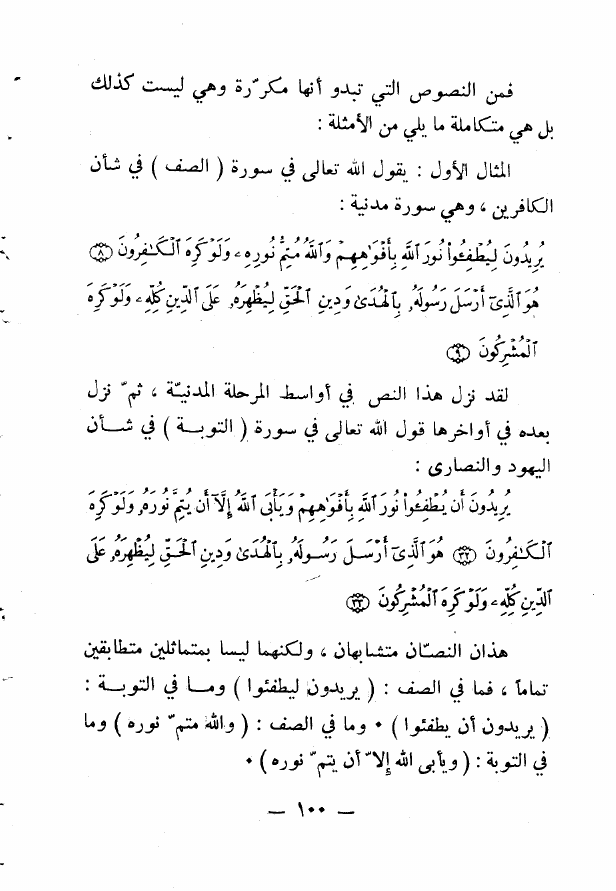 فمن النصوص التي تبدو أنها مكرّرة وهي ليست كذلك
بل هي متكاملة ما يلي من الأمثلة :
المثال الأول : يقول الله تعالى في سورة ( الصف ) في شأن
الكافرين ، وهي سورة مدنية :
يُرِيدُونَ لِيُطْفِـُٔوا۟ نُورَ ٱللَّهِ بِأَفْوَٰهِهِمْ وَٱللَّهُ مُتِمُّ نُورِهِۦ وَلَوْ كَرِهَ ٱلْكَٰفِرُونَ ٨
هُوَ ٱلَّذِىٓ أَرْسَلَ رَسُولَهُۥ بِٱلْهُدَىٰ وَدِينِ ٱلْحَقِّ لِيُظْهِرَهُۥ عَلَى ٱلدِّينِ كُلِّهِۦ وَلَوْ كَرِهَ
ٱلْمُشْرِكُونَ ٩
لقد نزل هذا النص في أواسط المرحلة المدنيّة ، ثمّ نزل
بعده في أواخرها قول الله تعالى في سورة ( التوبة ) في شأن
اليهود والنصارى :
يُرِيدُونَ أَن يُطْفِـُٔوا۟ نُورَ ٱللَّهِ بِأَفْوَٰهِهِمْ وَيَأْبَى ٱللَّهُ إِلَّآ أَن يُتِمَّ نُورَهُۥ وَلَوْ كَرِهَ
ٱلْكَٰفِرُونَ ٣٢ هُوَ ٱلَّذِىٓ أَرْسَلَ رَسُولَهُۥ بِٱلْهُدَىٰ وَدِينِ ٱلْحَقِّ لِيُظْهِرَهُۥ عَلَى
ٱلدِّينِ كُلِّهِۦ وَلَوْ كَرِهَ ٱلْمُشْرِكُونَ ٣٣
هذان النصّان متشابهان ، ولكنهما ليسا بمتماثلين متطابقين
تماماً ، فما في الصف : ( يريدون ليطفئوا ) وما في التوبة :
( يريدون أن يطفئوا ) ٠ وما في الصف : ( والله متمّ نوره ) وما
في التوبة : ( ويأبى الله إلاّ أن يتمّ نوره ) ٠
— ١٠٠ —